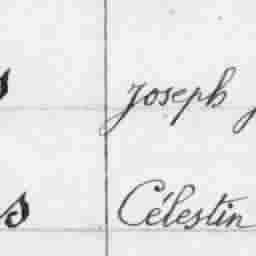 s Joseph J
s Célestin